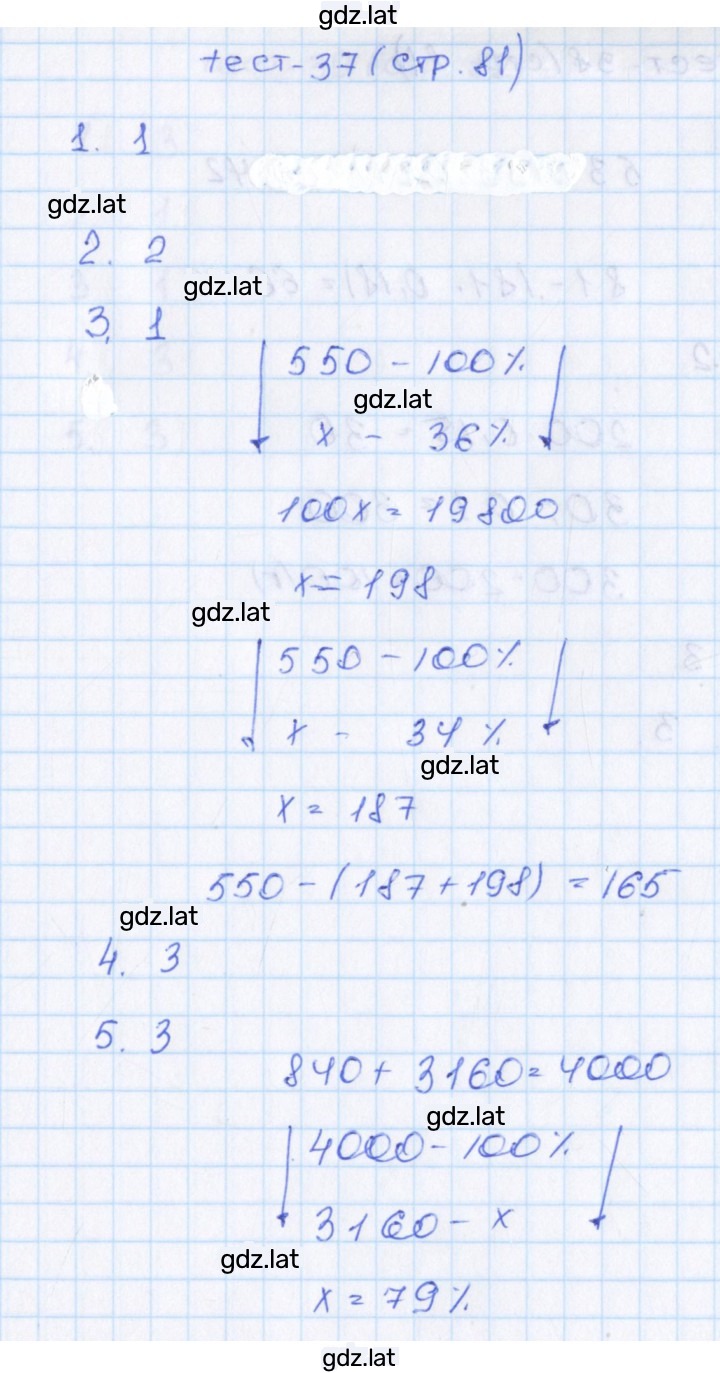 gdz.lat
тест-37 (стр. 81)
1. 1
gdz.lat
2. 2
gdz.lat
3. 1
550 - 100%
gdz.lat
x - 36%
100x = 19800
x = 198
gdz.lat
550 - 100%
x - 34%
gdz.lat
x = 187
550 - (187 + 198) = 165
gdz.lat
4. 3
5. 3
840 + 3160 = 4000
gdz.lat
4000 - 100%
3160 - x
gdz.lat
x = 79%
gdz.lat